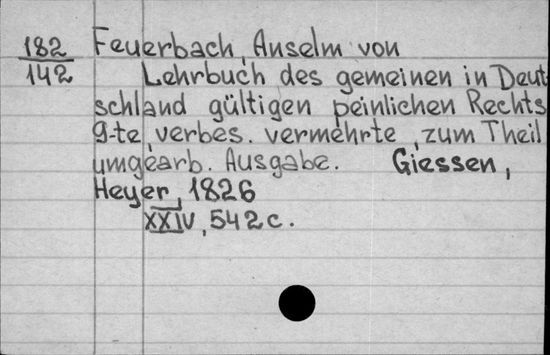 182 Feuerbach, Anselm von
142 Lehrbuch des gemeinen in Deut
schland gültigen peinlichen Rechts
9-te, verbes. vermehrte, zum Theil
umgearb. Ausgabe. Giessen,
Heyer, 1826
XXIV, 542 c.